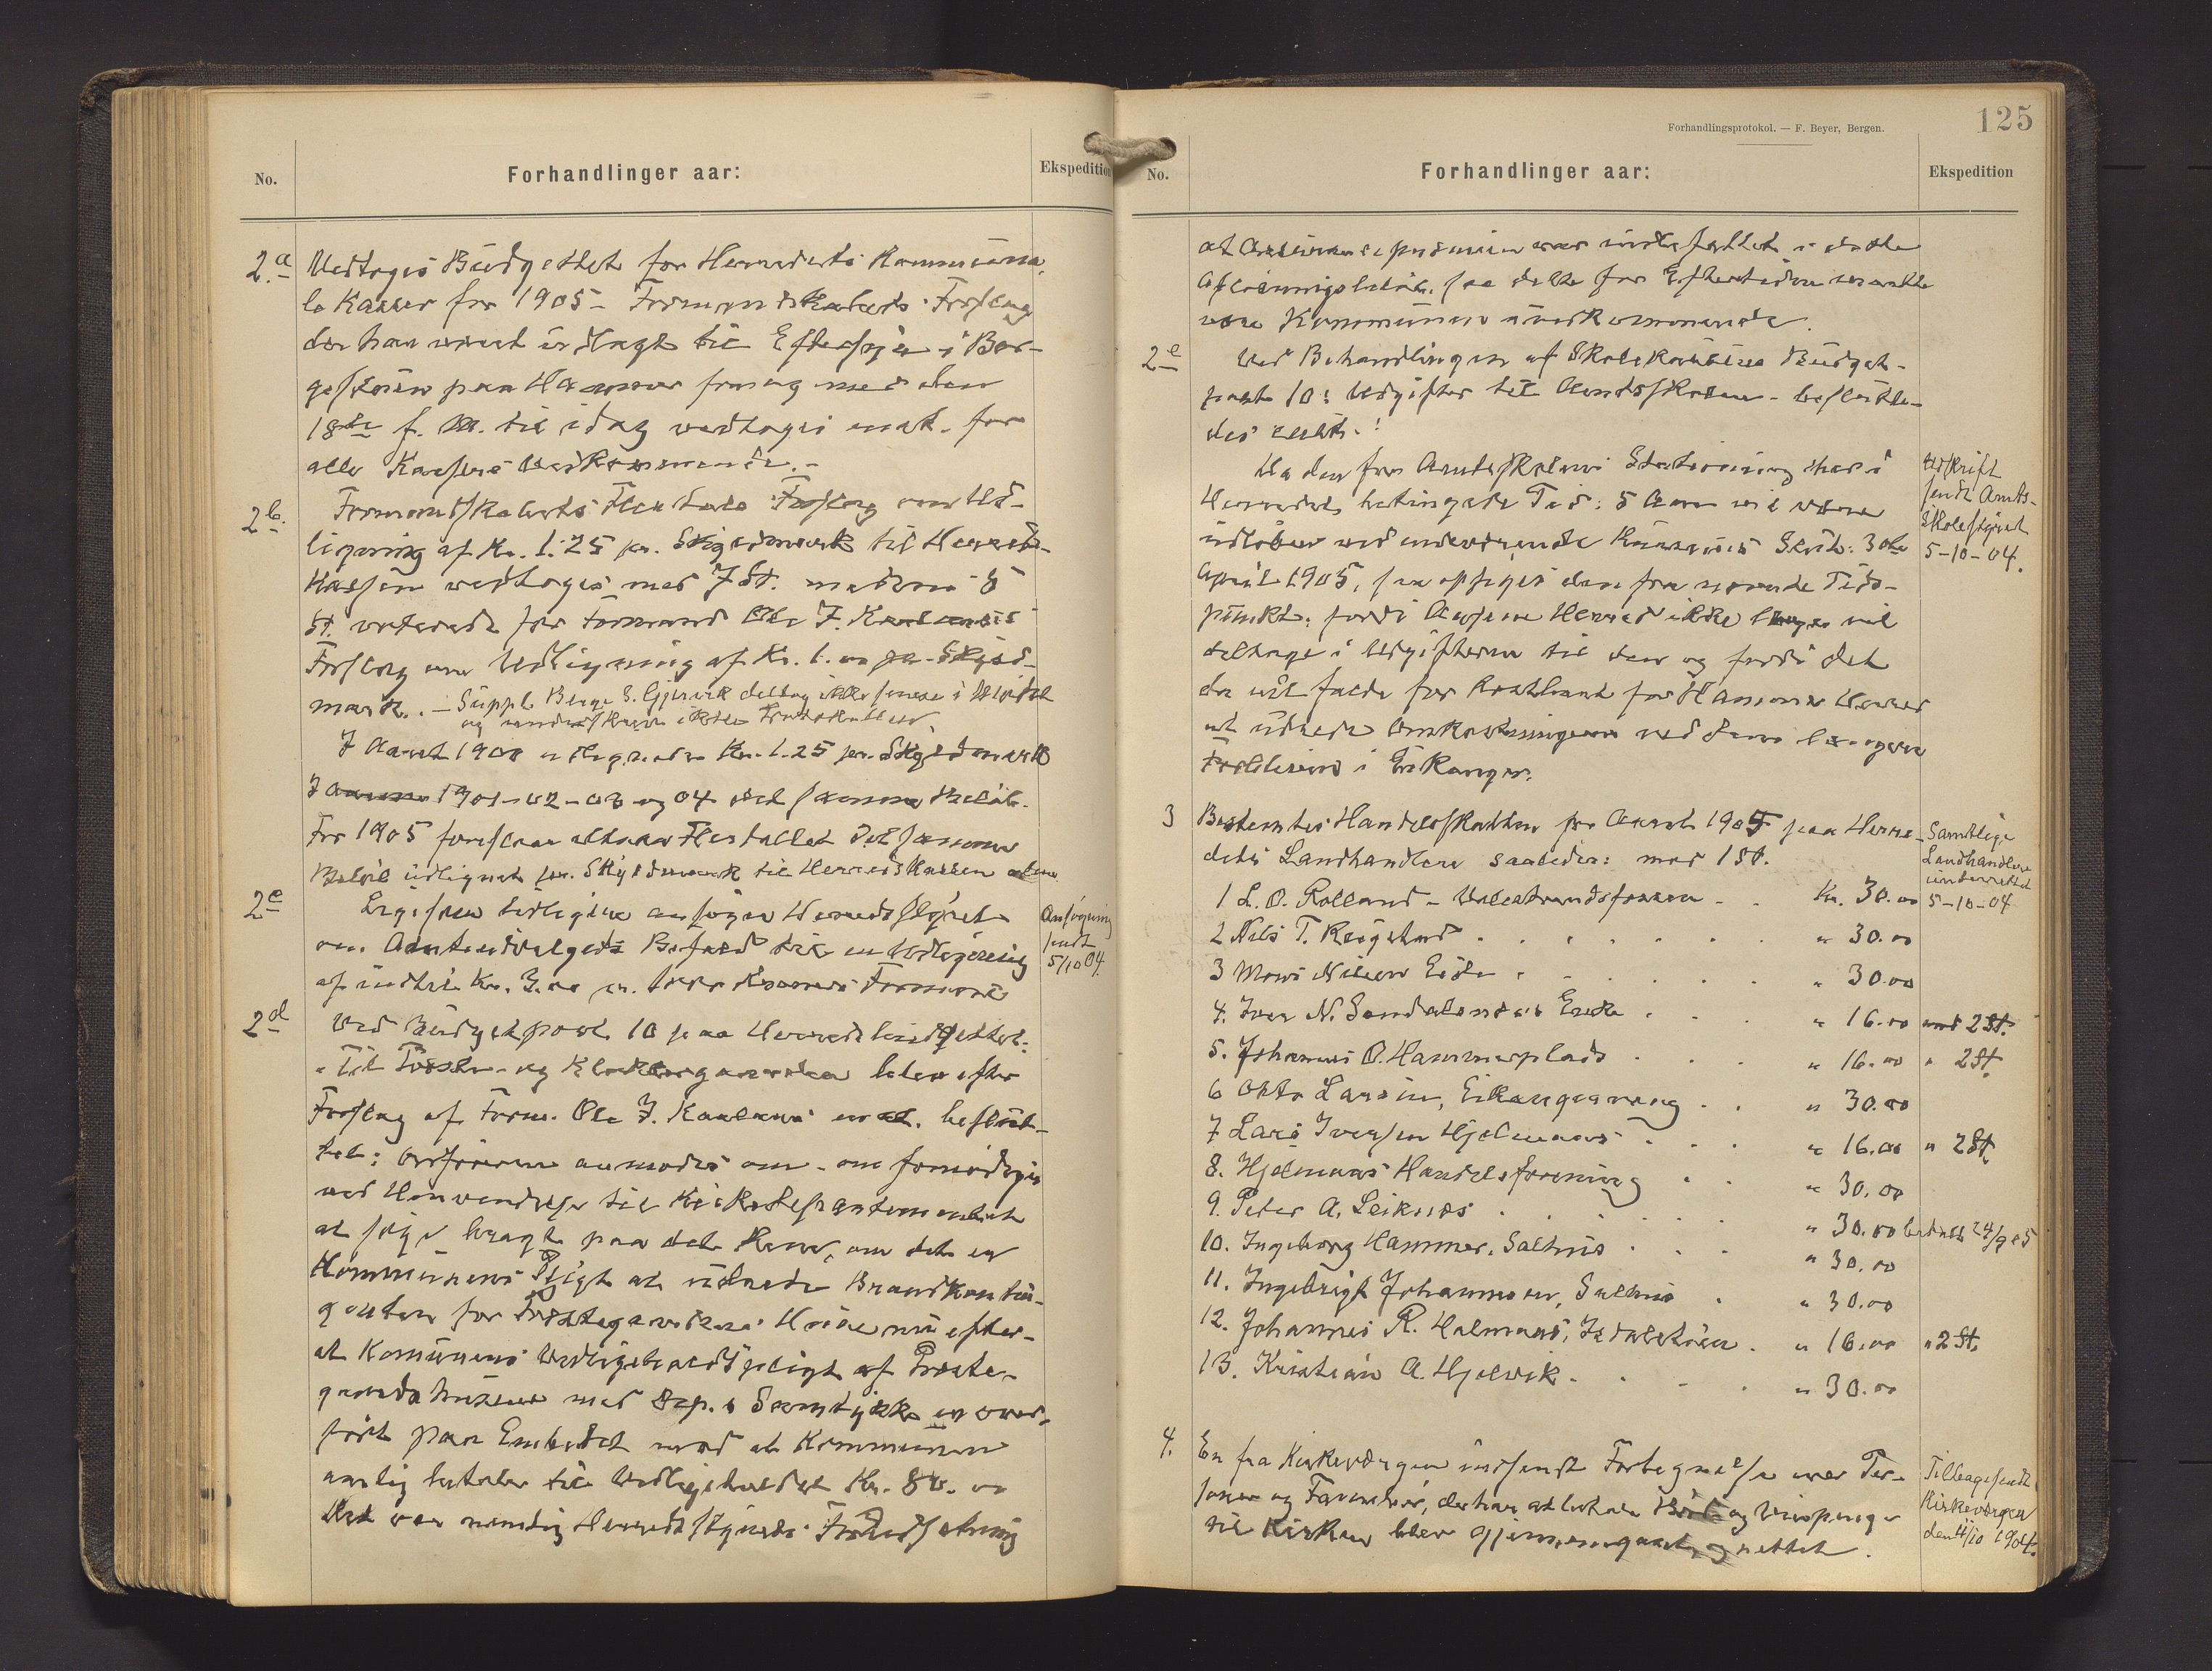 No.
Forhandlinger aar:
Ekspedition
2.a Vedtoges Budgettet for Herredets Kommuna-
le Kasser for 1905 - Formandskabets Forslag
der har været udlagt til Eftersyn i
paa Hammer fra og med den
18de f. M. til idag vedtoges enst. for
alle Kassers Vedkommende. -
2b. Formandskabets Flertals Forslag om Ud-
ligning af Kr. 1.25 pr. Skyldmark til Herreds-
kassen vedtoges med 7 St. medens 5
St. voteredes for Formand Ole J.
Forslag om Udligning af Kr. 1.00 pr. Skyld-
mark. - Suppl. Berge S. Gjervik deltog ikke
og underskrev ikke Protokollen
I Aaret 1900 udlignedes Kr. 1.25 pr. Skyldmark
I Aarene 1901-02-03 og 04 det samme Beløb.
For 1905 foreslaar altsaa Flertallet det samme
Beløb udlignet pr. Skyldmark til Herredskassen alene.
2c Ligesom tidligere ansøger Herredsstyret
om Amtsudvalgets Bifald til en Udligning
af indtil Kr. 3.00 pr. Formue
Ansøgning
sendt
5/10 04.
2d Ved Budgetpost 10 paa Herredsbudgettet:
"Til Præste- og Klokkergaardene blev efter
Forslag af Form. Ole J. Kaalaas enst. beslut-
tet: Ordføreren anmodes om - om fornødiges
ved Henvendelse til Kirkedepartementet
at søge bragt paa det Rene, om det er
Kommunens Pligt at udrede Brandkontin-
genten for Præstegaardens Huse nu efter-
at Komunens Vedligeholdspligt af Præste-
gaardshusene med Dep.s Samtykke er over-
ført paa Embedet mod at Kommunen
aarlig betaler til Vedligeholdet Kr. 80.00
Det var nemlig Herredsstyrets Forudsætning
Forhandlingsprotokol. — F. Beyer, Bergen.
125
No.
Forhandlinger aar:
Ekspedition
at Assurancepræmien var indbefattet i dette
Afløsningsbeløb, saa dette for Eftertiden maatte
være Kommunen uvedkommende.
2e Ved Behandlingen af Skolekassens Budget-
post 10: Udgifter til Amtsskolen - beslutte-
des enst.:
Da den for Amtsskolens Stationering her i
Herredet betingede Tid: 5 Aar vil være
udløben ved nuværende Kursus's Slut: 30te
April 1905, saa opsiges den fra nævnte Tids-
punkt, fordi Herred ikke længer vil
deltage i Udgifterne til den og fordi det
da vil falde for kostbart for Hammer Herred
at udrede Omkostningerne ved dens længere
i Eikanger.
Udskrift
sendt Amts-
skolestyret
5-10-04.
3 Bestemtes Handelsskatten for Aaret 1905 paa Herre-
dets Landhandlere saaledes: mod 1 St.
Samtlige
Landhandlere
underrettet
5-10-04
1 L. O. Rolland - Valestrandsfossen - . Kr. 30.00
2 Nils T. . . . . . . " 30.00
3 Mons Nilsen Eide . . . . . " 30.00
4. Iver N. . . . " 16.00 mod 2 St.
5. Johannes O. Hammerplads . . . " 16.00 " 2 St.
6 Otto Larsen, Eikangervaag . . " 30.00
7 Lars Iversen Hjelmaas . . . " 16.00 " 2 St.
8. Hjelmaas Handelsforening . . " 30.00
9. Peter A. Leiknes . . . . . . " 30.00 betalt 24/9 05
10. Ingeborg Hammer, Salhus . . . " 30.00
11. Ingebrigt Johannesen, Salhus . " 30.00
12. Johannes R. Helmaas, . " 16.00 " 2 St.
13. Kristian A. Hjelvik . . - . " 30.00
4. En fra Kirkeværgen indsendt Fortegnelse over Per-
soner og Familier, der har at betale og
til Kirken blev gjennemgaaet og rettet.
Tilbagesendt
Kirkeværgen
den 11/10 1904.